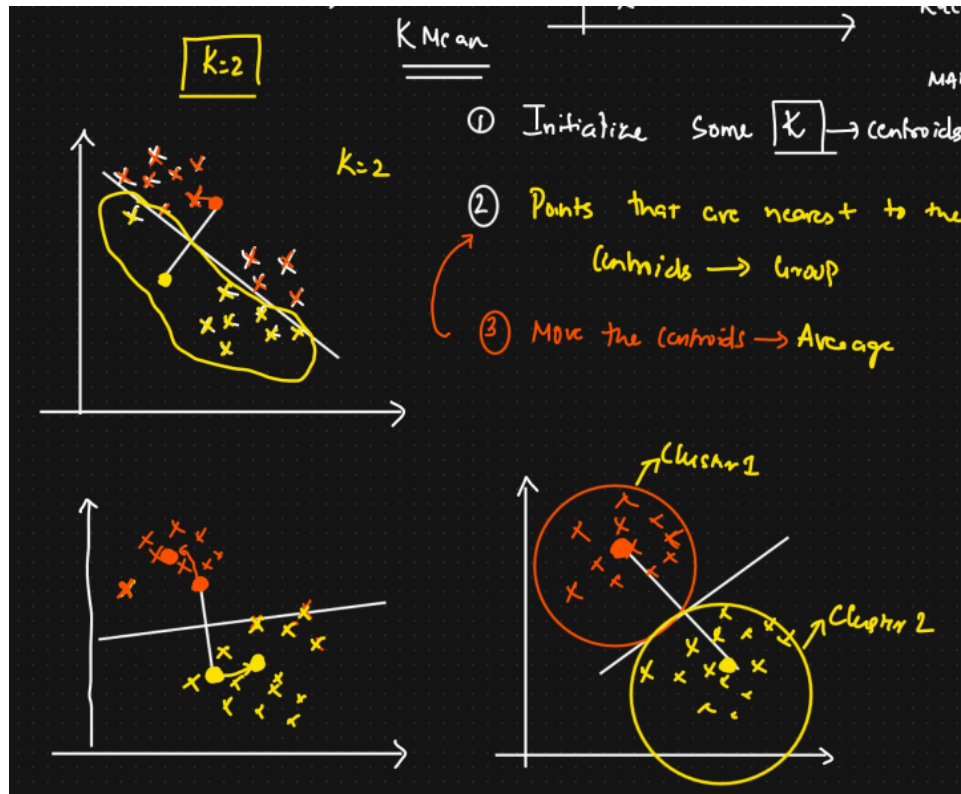 K Mean
K=2
① Initialize Some K → centroids
K=2
② Points that are nearest to the
Centroids → Group
③ Move the Centroids → Average
Cluster 1
Cluster 2